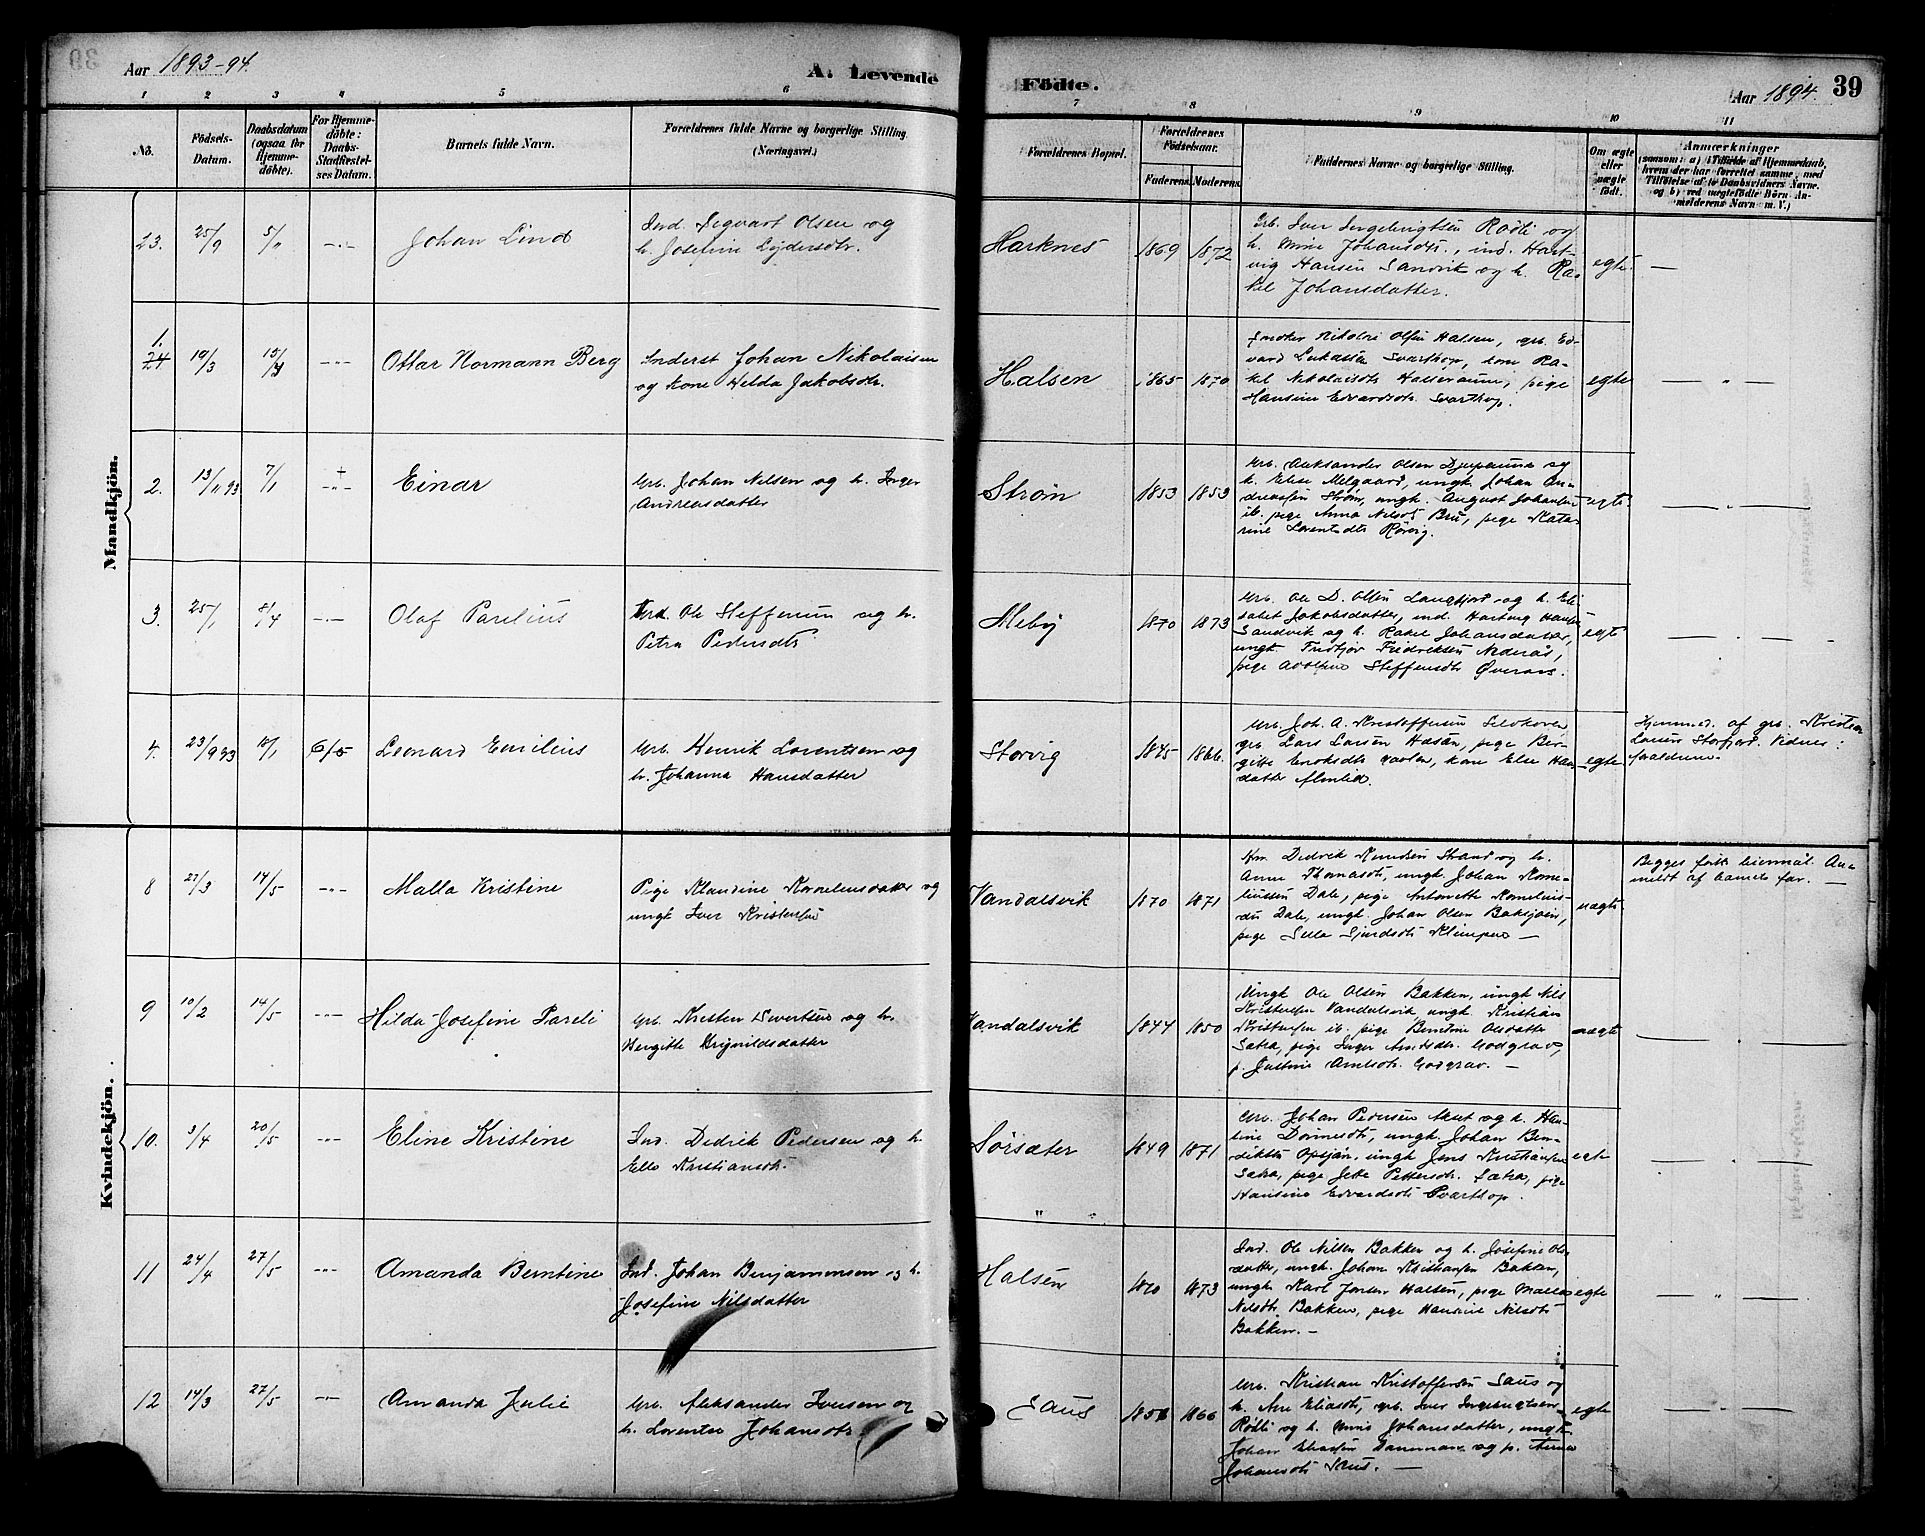 Aar 1893-94.
A. Levende
Födte.
Aar 1894.
39
1
2
3
4
5
6
7
8
9
10
11
No.
Födsels-
Datum.
Daabsdatum
(ogsaa for
Hjemme-
döbte).
For Hjemme-
döbte:
Daabs-
Stadfæstel-
ses Datum.
Barnets fulde Navn.
Forældrenes fulde Navne og borgerlige Stilling
(Næringsvei.)
Forældrenes Bopæl.
Forældrenes
Födselsaar.
Faderens.
Moderens.
Faddernes Navne og borgerlige Stilling.
Om ægte
eller
uægte
födt.
Anmærkninger
(saasom: a) i Tilfælde af Hjemmedaab,
hvem der har forrettet samme, med
Tilföielse af to Daabsvidners Navne,
og b) ved uægtefödte Börn, An-
melderens Navn m. V.)
Mandkjön.
23. 25/9 5/11 -„- Johan Lind
Ind. Sigvart Olsen og
h. Josefine
Harknes 1869 1872
Grb. Iver Ingebrigtsen Rødli og
h. Mine Johansdtr., ind. Hart-
vig Hansen Sandvik og h. Ra-
kel Johansdatter.
egte. —
1.
24 19/3 15/4 -„- Ottar Normann Berg
Inderst Johan Nikolaisen
og kone Hilda Jakobsdtr.
Halsen 1865 1870
Inder Nikolai Olsen Halsen, grb. Ed-
vard Lukassen Svarthop, kone Ra-
kel Nikolaisdtr. pige
Hansine Edvardsdtr. Svarthop.
egte — „ —
2. 13/11 93 7/1 Einar
Grb. Johan Nilsen og h. Inger
Andreasdatter
Strøm 1853 1853
Grb. Aleksander Olsen og
h. Elise Melgaard, ungk. Johan An-
dreassen Strøm, ungk. August Johansen
ib. pige Anna Nilsdtr. Bru, pige Kata-
rine Lorentsdtr. Rørvig.
egte — „ —
3. 25/1 8/4 -„- Olaf Parelius
Ole Steffensen og h.
Petra Pedersdtr.
Meby 1870 1873
Grb. Ole D. Olsen Langfjord og h. Eli-
sabet Jakobsdatter, ind. Hartvig Hansen
Sandvik og h. Rakel Johansdatter,
ungk. Fridtjov Fredriksen Nederås,
pige Adolfine Steffensdtr. Øveraas.
egte — „ —
4. 23/9 93 1 6/5 Leonard Emilius
Grb. Henrik Lorentsen og
h. Johanna Hansdatter
Storvig 1845 1866.
Grb. Joh. A. Kristoffersen
grb. Lars Larsen Hasån, pige Ber-
gitte kone Else Hans-
datter
egte
Hjemmed. af grb. Kristen
Larsen Storfjord. Vidnes:
forældrene.
Kvindekjön.
8 27/3 14/5 -„- Malla Kristine
Pige Klaudine Korneliusdatter og
ungk. Iver Kristensen
Vandalsvik 1870 1871
Km. Didrik Knudsen Strand og h.
Anne Thomasdtr., ungk. Johan Korne-
liussen Dale, pige Antonette Kornelius-
dtr. Dale, ungk. Johan Olsen
pige Sella —
uegte
Begges første leiermål. An-
meldt af barnets far. —
9 10/2 14/5 -„- Hilda Josefine Pareli
Grb. Kristen Sivertsen og h.
Bergitte Brynildsdatter
Vandalsvik 1844 1850
Ungk. Ole Olsen Bakken, ungk. Nils
Kristensen Vandalsvik, ungk. Kristian
Kristensen ib. pige Berntine Olsdatter
Sætra, pige Inger Godgrav,
p. Justine Godgrav. —
— „ —
10. 3/4 20/5 -„- Eline Kristine
Ind. Didrik Pedersen og h.
Ello Kristiansdtr.
Sörsæter 1849 1871
Grb. Johan Pedersen og h. Han-
sine ungk. Johan Ben-
diktsen Opsjön, ungk. Jens Kristiansen
Sætra, pige Jette Pettersdtr. Sætra, pige
Hansine Edvardsdtr. Svarthop.
egte — „ —
„ „
11 24/4 27/5 -„- Amanda Berntine
Ind. Johan Benjaminsen og h.
Josefine Nilsdatter
Halsen 1870 1873
Ind. Ole Nilsen Bakken og h. Josefine Ols-
datter, ungk. Johan Kristiansen Bakken,
ungk. Karl Jensen Halsen, pige
Nilsdtr. Bakken, pige Hansine Nilsdtr.
Bakken. —
egte — „ —
12 14/3 27/5 -„- Amanda Julie
Grb. Aleksander Iversen og
h. Lorentse Johansdtr.
Saus 1851 1866
Grb. Kristian Kristoffersen Saus og
h. Ane Eliasdtr., grb. Iver Ingebrigtsen
Rødli og h. Johansdatter, ungk.
Johan og p. Anna
Johansdtr. Saus. —
egte — „ —